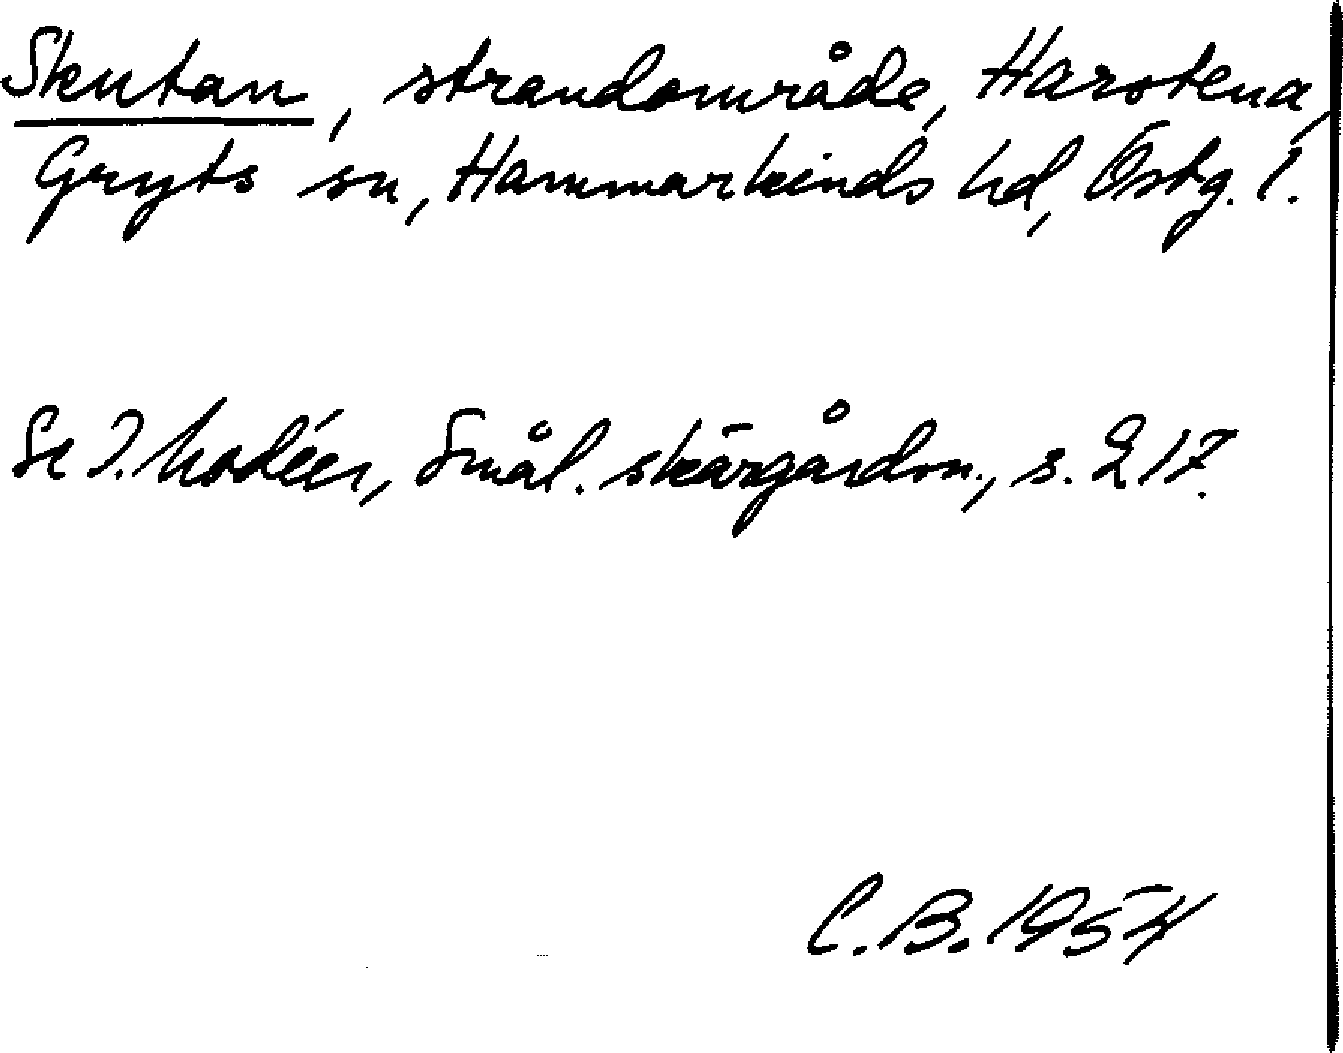 Skutan, strandområde, Harstena,
Gryts sn, Hammarkinds hd, Östg. l.
Se I. Modéer, Smål. skärgårdsn., s. 217.
C.B. 1954